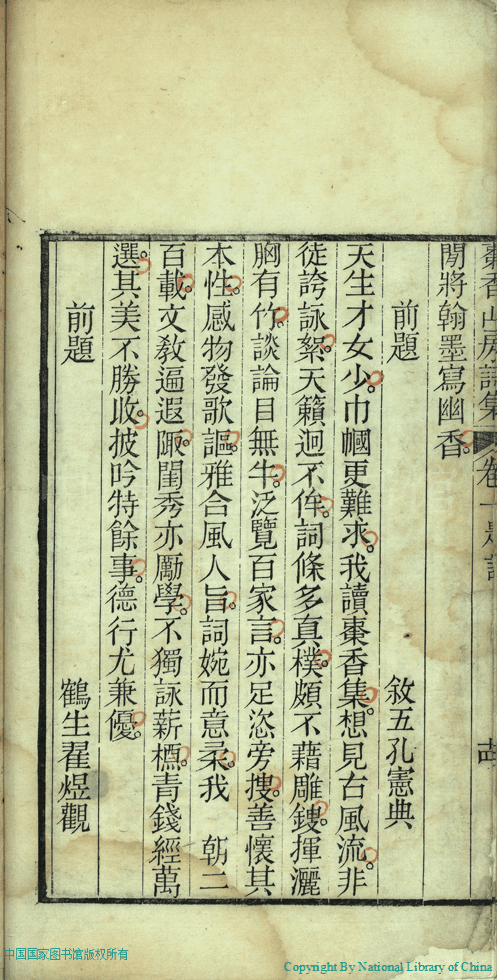 棗香山房詩集 卷十題詞
閒將翰墨寫幽香
前題 敘五孔憲典
天生才女少巾幗更難求我讀棗香集想見古風流非
徒誇詠絮天籟迥不侔詞條多真樸頗不藉雕鎪揮灑
胸有竹談論目無牛泛覽百家言亦足恣旁搜善懷其
本性感物發歌謳雅合風人旨詞婉而意柔我 朝二
百載文教遍遐陬閨秀亦勵學不獨詠薪槱青錢經萬
選其美不勝收披吟特餘事德行尤兼優
前題 鶴生翟煜觀
中国国家图书馆版权所有
Copyright By National Library of China